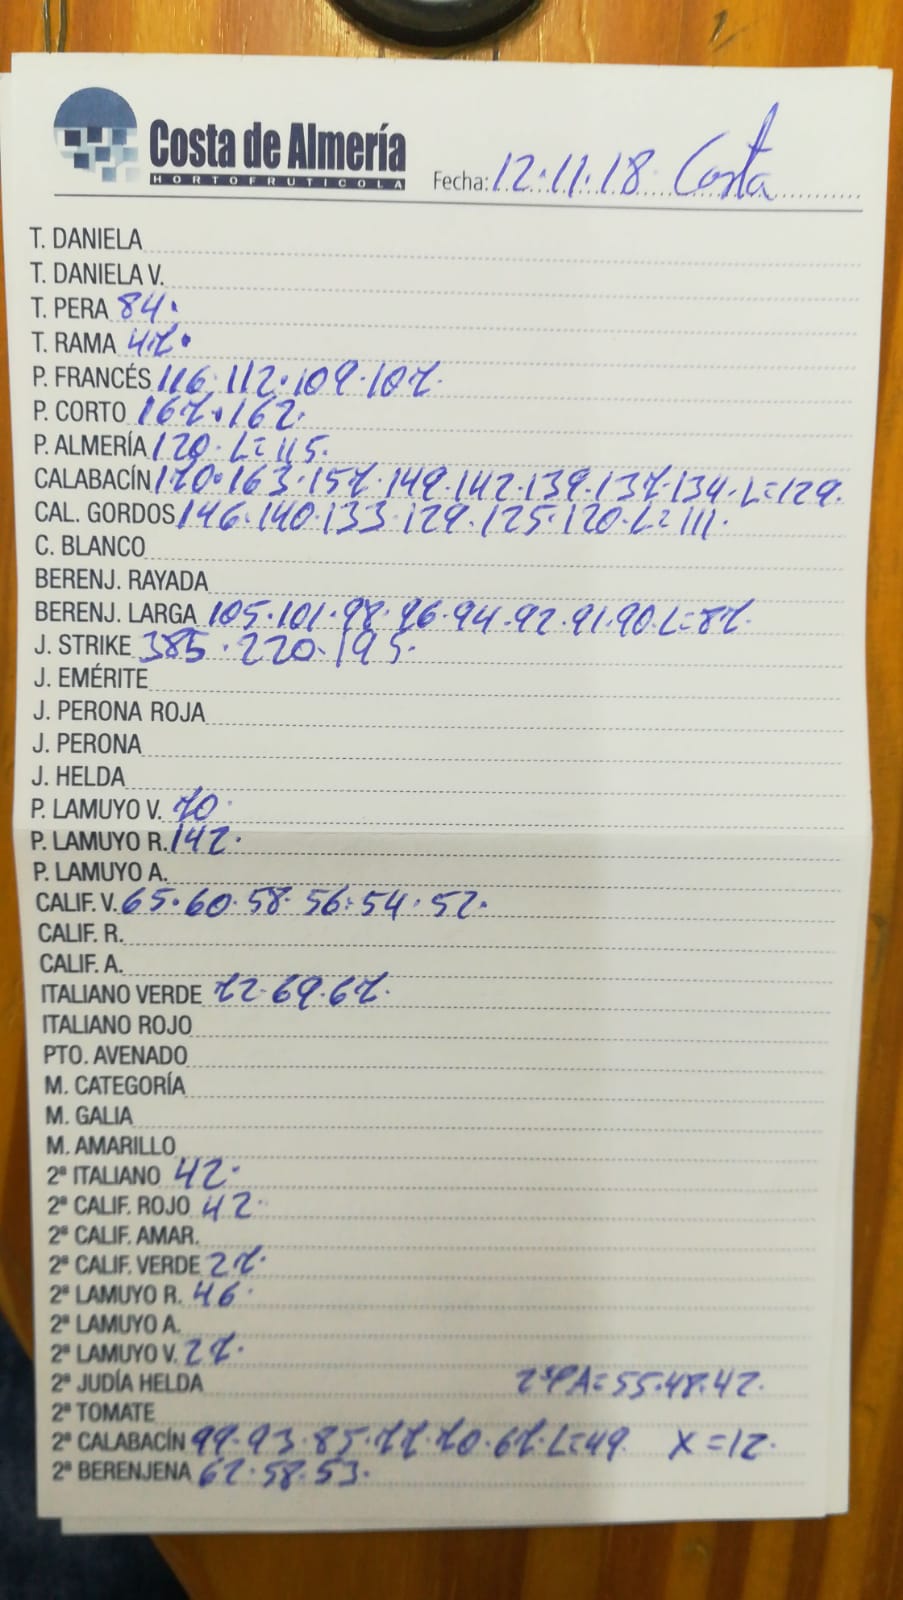 Costa de Almería
HORTOFRUTICOLA
Fecha: 12.11.18 Costa
T. DANIELA
T. DANIELA V.
T. PERA 84.
T. RAMA 47.
P. FRANCÉS 116.112.109.107.
P. CORTO 167.162.
P. ALMERÍA 120. L=115.
CALABACÍN 170.163.157.149.142.139.137.134.L=129.
CAL. GORDOS 146.140.133.129.125.120.L=111.
C. BLANCO
BERENJ. RAYADA
BERENJ. LARGA 105.101.98.96.94.92.91.90.L=87.
J. STRIKE 385.220.195.
J. EMÉRITE
J. PERONA ROJA
J. PERONA
J. HELDA
P. LAMUYO V. 70.
P. LAMUYO R. 142.
P. LAMUYO A.
CALIF. V. 65.60.58.56.54.52.
CALIF. R.
CALIF. A.
ITALIANO VERDE 72.69.67.
ITALIANO ROJO
PTO. AVENADO
M. CATEGORÍA
M. GALIA
M. AMARILLO
2ª ITALIANO 42.
2ª CALIF. ROJO 42.
2ª CALIF. AMAR.
2ª CALIF. VERDE 27.
2ª LAMUYO R. 46.
2ª LAMUYO A.
2ª LAMUYO V. 27.
2ª JUDÍA HELDA 2ªPA=55.48.42.
2ª TOMATE
2ª CALABACÍN 99.93.85.77.70.67.L=49. X=12.
2ª BERENJENA 62.58.53.